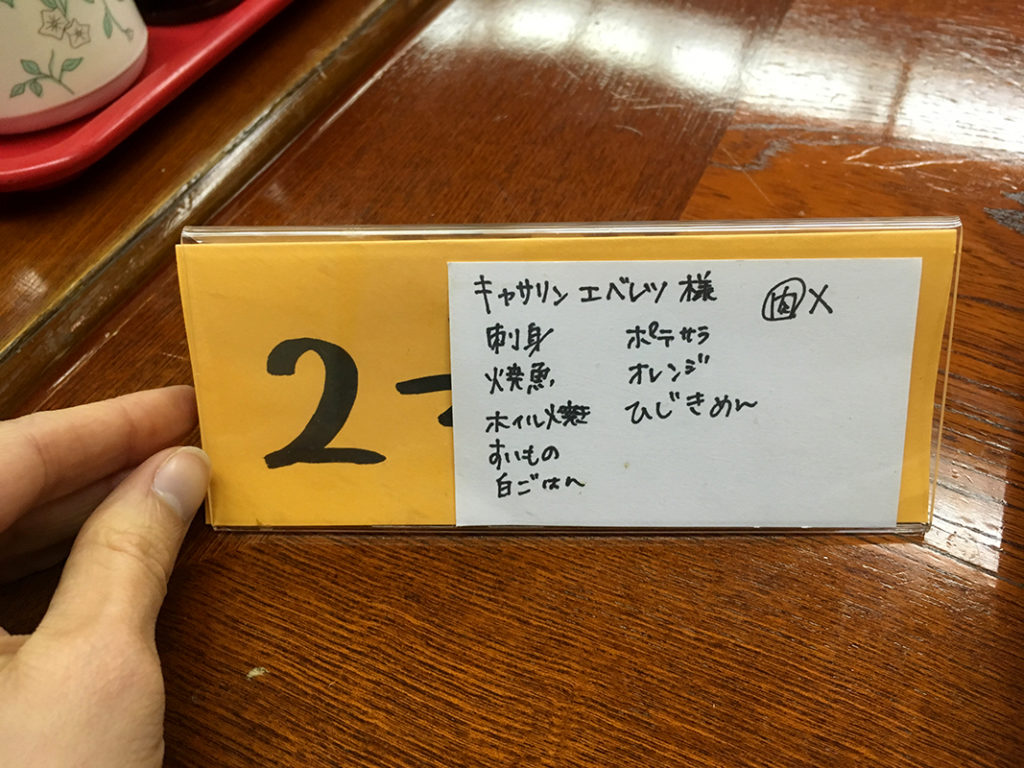 2
キャサリン エベレツ 様 ㊥肉 X
刺身 ポテサラ
焼魚 オレンジ
ホイル焼き ひじきめん
すいもの
白ごはん